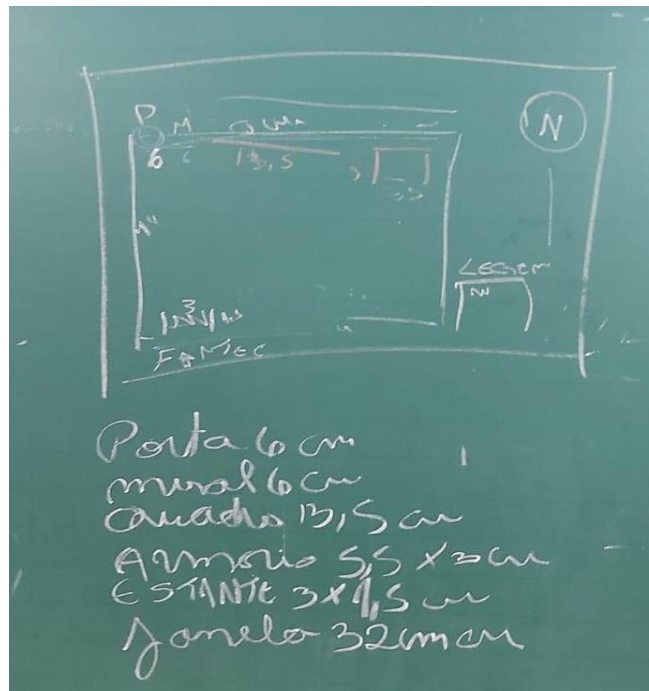 N
P M
6 6 13,5
LEGEN
N
3
Porta 6 cm
mural 6 cm
Quadro 13,5 cm
Armario 5,5 x 3 cm
ESTANTE 3 x 1,5 cm
Janela 32cm cm